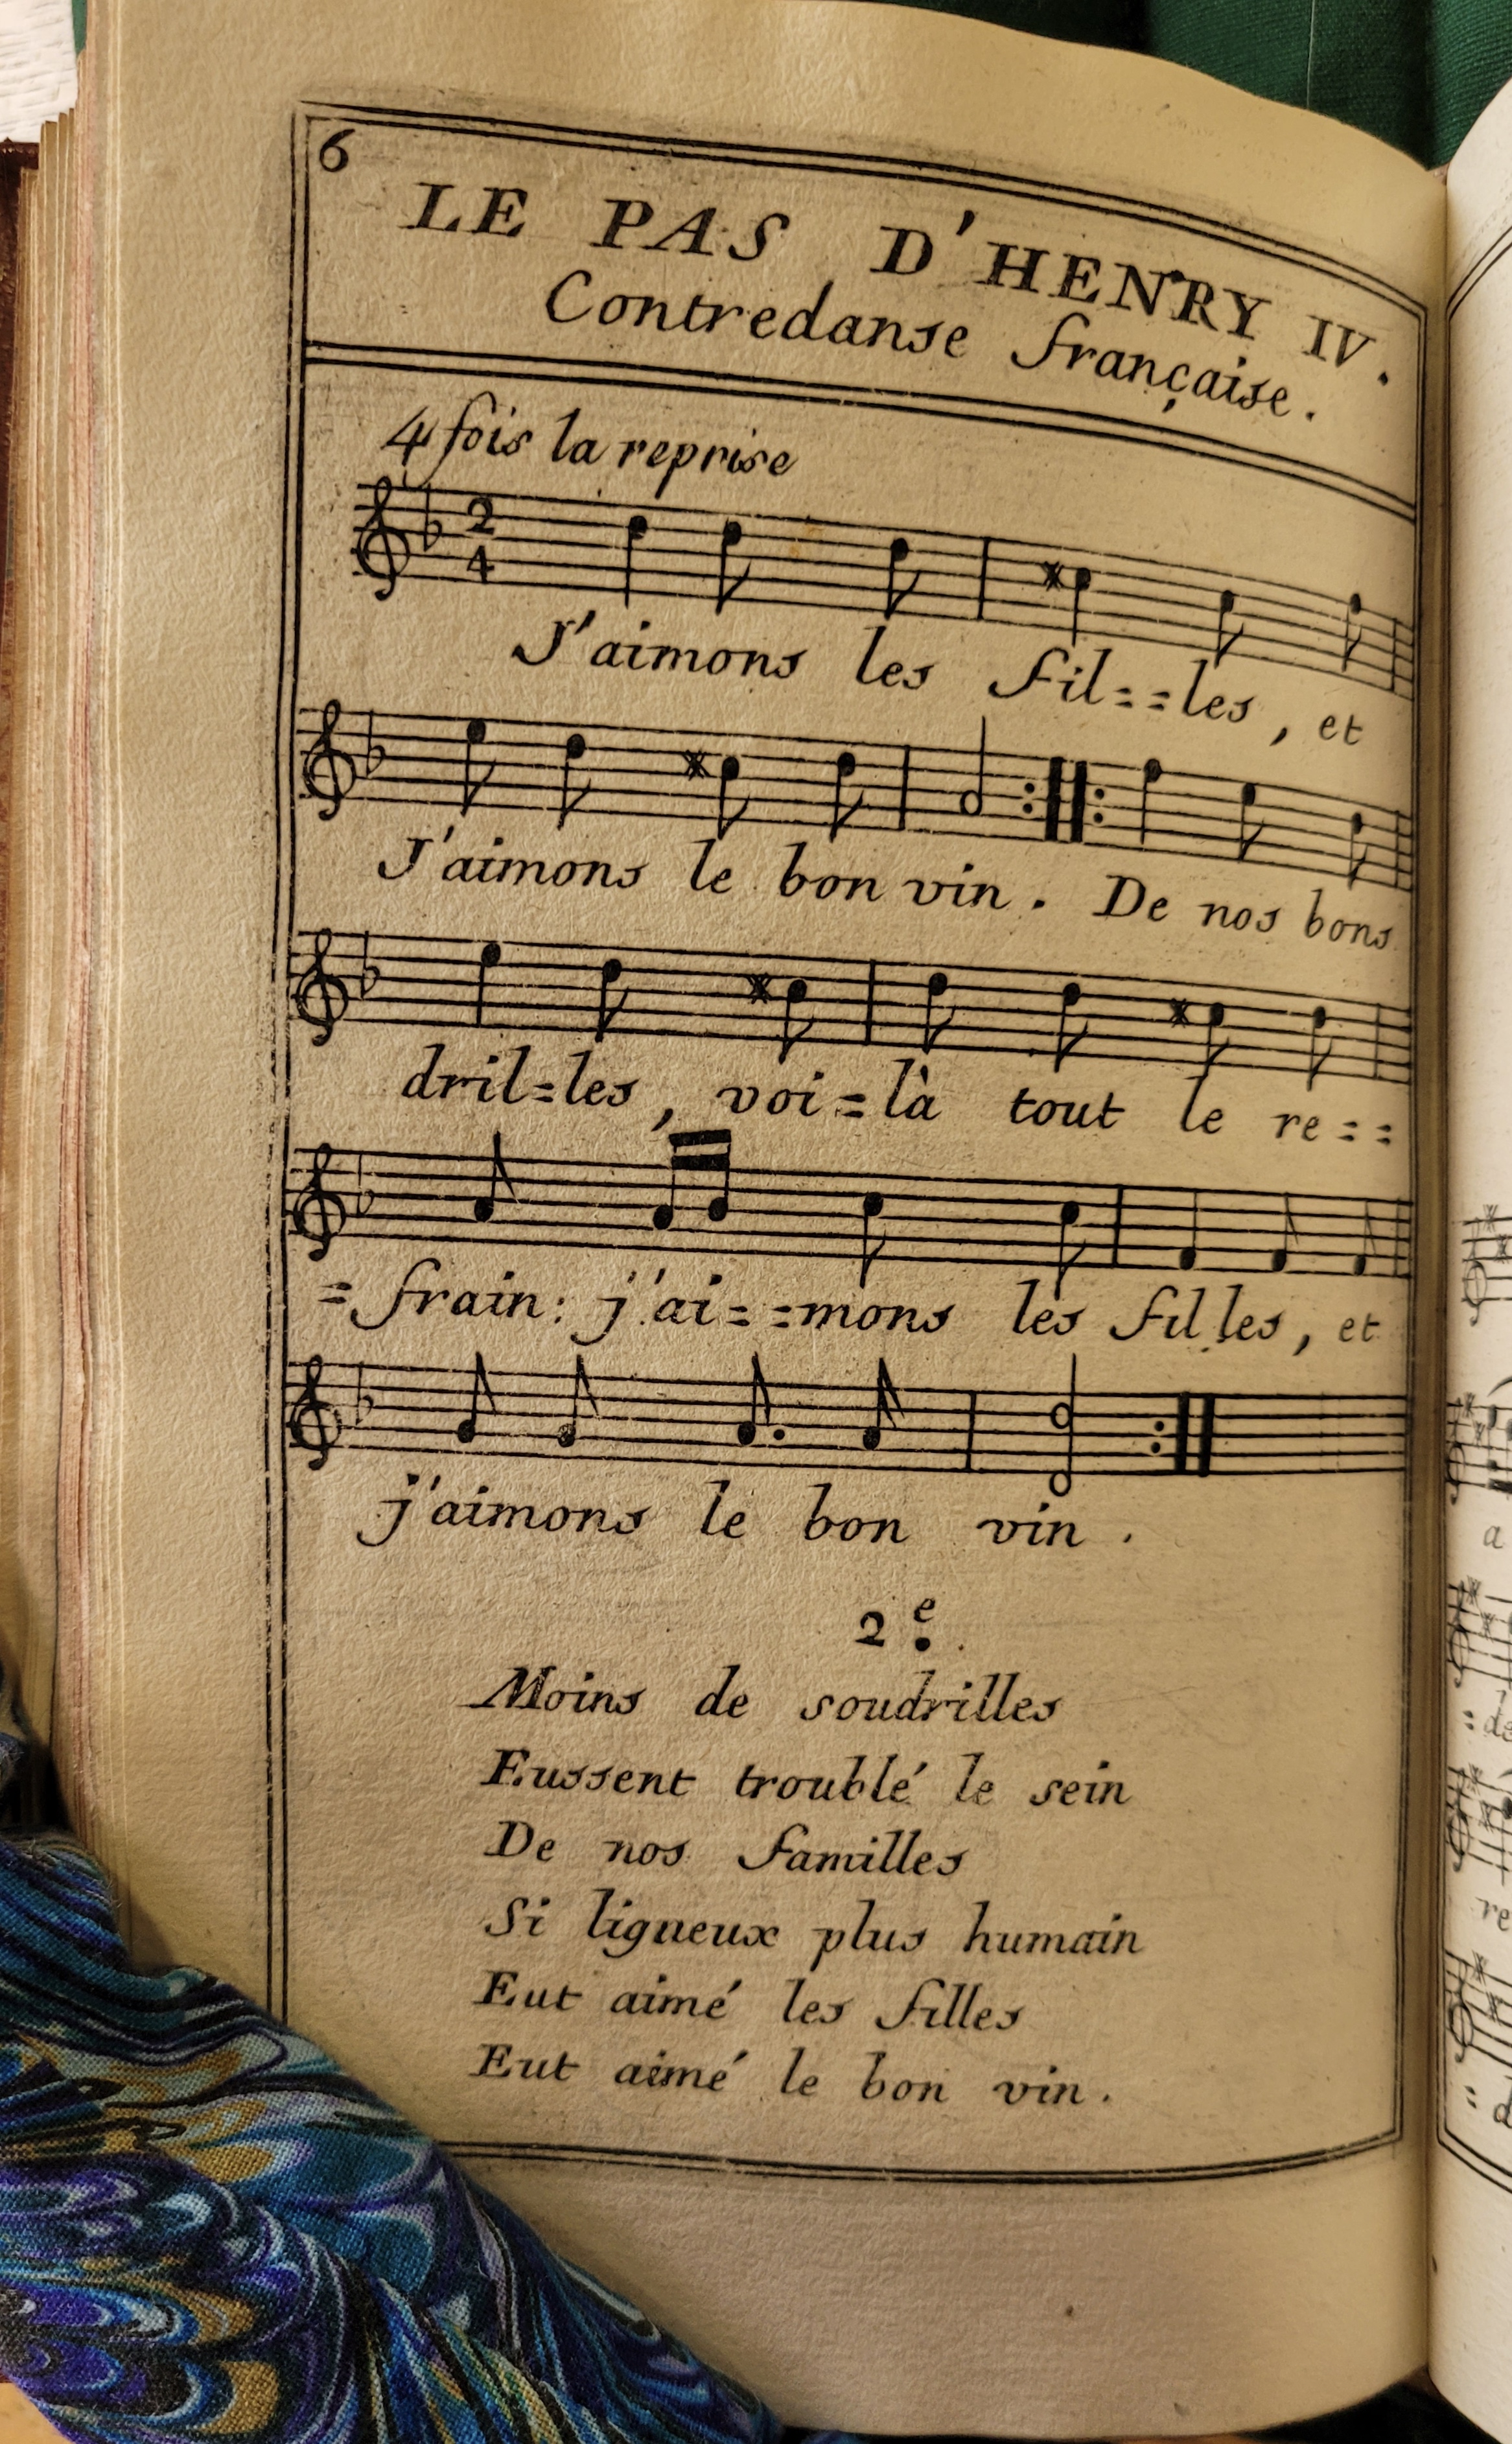 6
LE PAS D'HENRY IV.
Contredanse française.
4 fois la reprise
2
4
J'aimons les fil==les, et
J'aimons le bon vin. De nos bons
dril=les, voi=là tout le re==
=frain: j'ai==mons les filles, et
j'aimons le bon vin.
2e.
Moins de soudrilles
Eussent troublé le sein
De nos familles
Si ligueux plus humain
Eut aimé les filles
Eut aimé le bon vin.
a
re